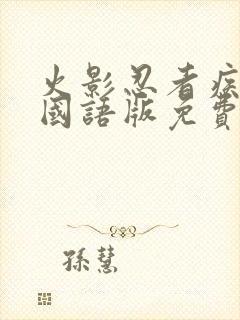 火影忍者疾
國語版免費
孫慧